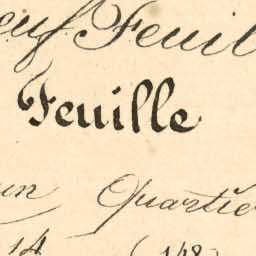 euf Feuil
Feuille
un Quartie
14 (148